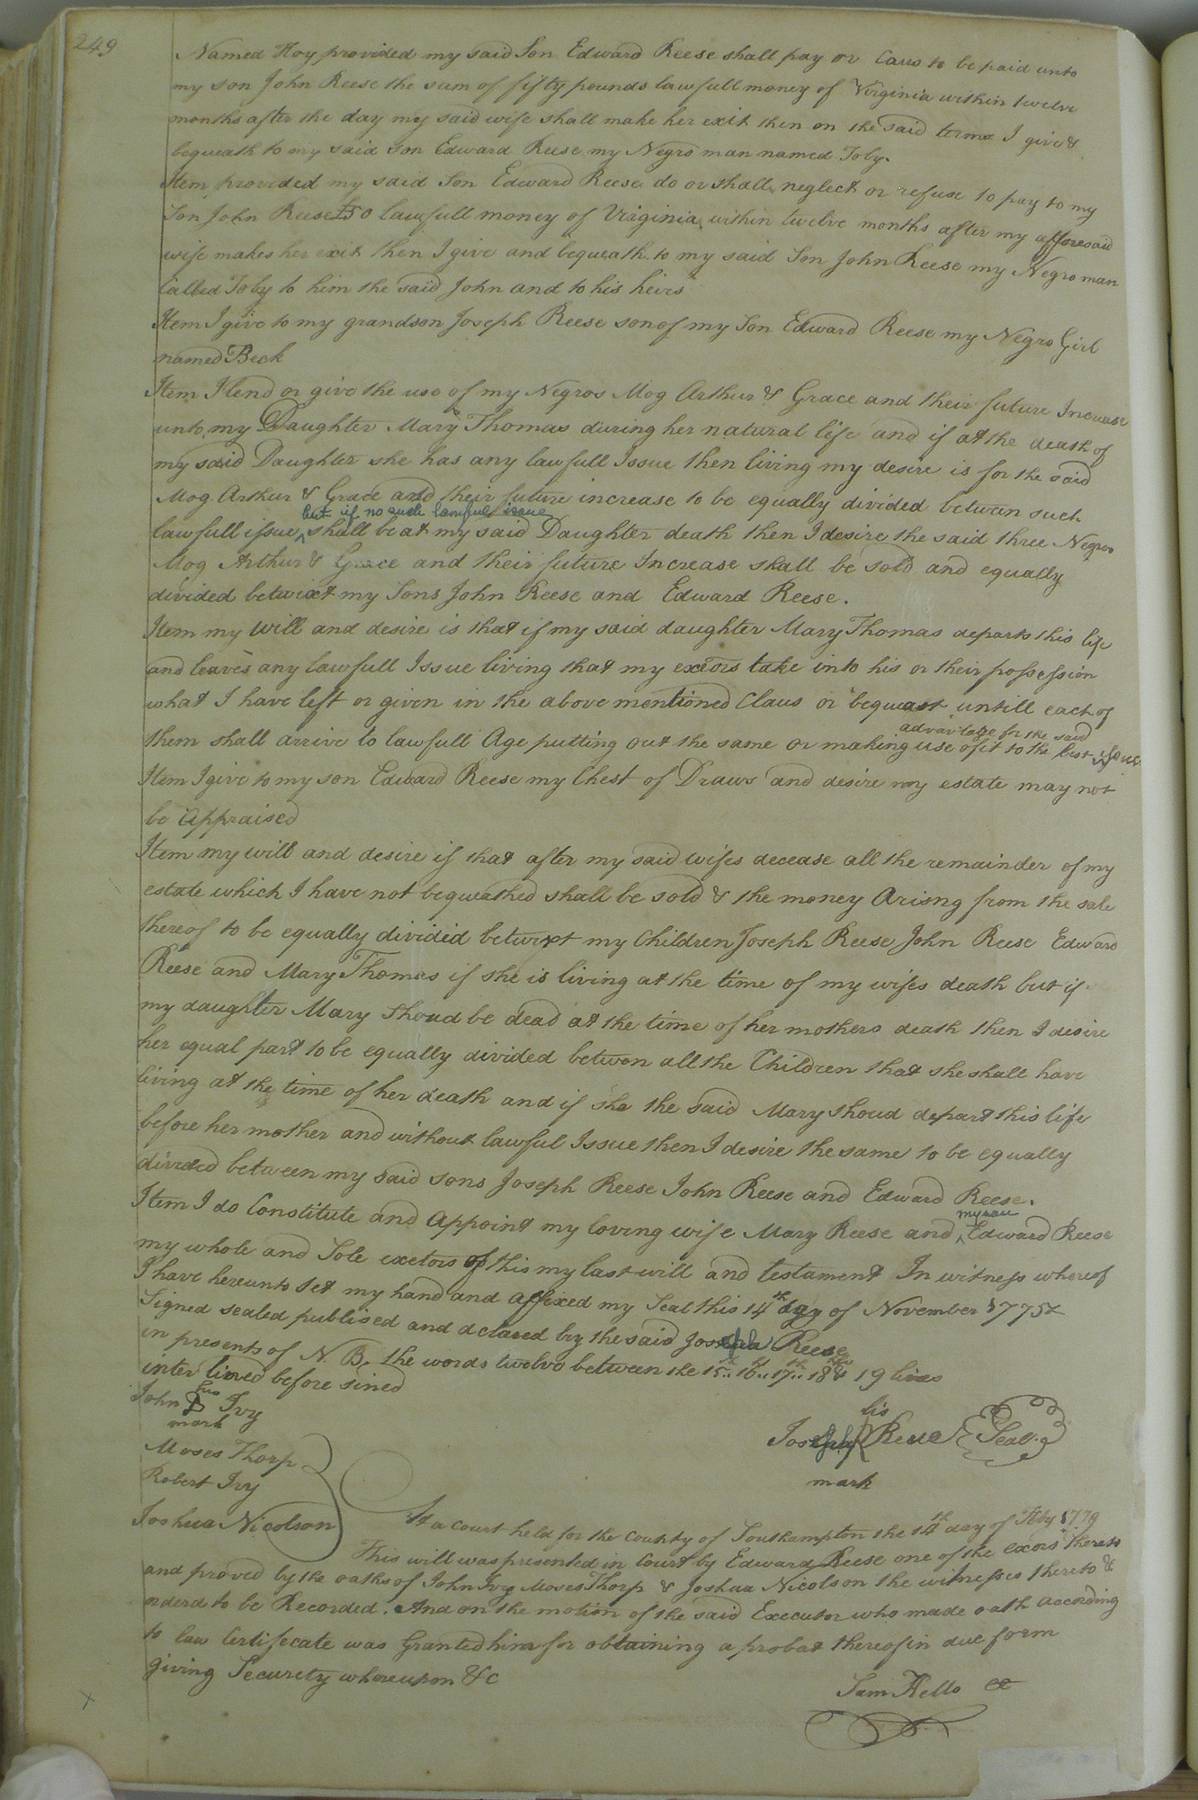 249
Named Hoy provided my said Son Edward Reese shall pay or Caus to be paid unto
my son John Reese the sum of fifty pounds lawfull money of Virginia within twelve
months after the day my said wife shall make her exit then on the said terms I give &
bequeath to my said Son Edward Reese my Negro man named Toby.
Item provided my said Son Edward Reese do or shall neglect or refuse to pay to my
Son John Reese £50 lawfull money of Virginia within twelve months after my afforesaid
wife makes her exit then I give and bequeath to my said Son John Reese my Negro man
Called Toby to him the said John and to his heirs
Item I give to my grandson Joseph Reese son of my Son Edward Reese my Negro Girl
named Beck
Item I lend or give the use of my Negros Mog Arthur & Grace and their future Increase
unto my Daughter Mary Thomas during her natural life and if at the death of
my said Daughter she has any lawfull Issue then living my desire is for the said
Mog Arthur & Grace and their future increase to be equally divided between such
but if no such lawful issue
lawfull issue ^ shall be at my said Daughter death then I desire the said three Negros
Mog Arthur & Grace and their future Increase shall be sold and equally
divided betwixt my Sons John Reese and Edward Reese.
Item my will and desire is that if my said daughter Mary Thomas departs this life
and leaves any lawfull Issue living that my exeors take into his or their possession
what I have left or given in the above mentioned Claus or bequast untill each of
advantage for the said
them shall arrive to lawfull Age putting out the same or making use of it to the best ^ Issue
Item I give to my son Edward Reese my Chest of Draws and desire my estate may not
be appraised
Item my will and desire if that after my said wifes decease all the remainder of my
estate which I have not bequeathed shall be sold & the money Arisng from the sale
thereof to be equally divided betwixt my Children Joseph Reese John Reese Edward
Reese and Mary Thomas if she is living at the time of my wifes death but if
my daughter Mary Shoud be dead at the time of her mothers death then I desire
her equal part to be equally divided betwen all the Children that she shall have
living at the time of her death and if she the said Mary Shoud depart this life
before her mother and without lawful Issue then I desire the same to be equally
divided between my said sons Joseph Reese John Reese and Edward Reese.
my son
Item I do Constitute and Appoint my loving wife Mary Reese and ^ Edward Reese
my whole and Sole exetors of this my last will and testament In witness whereof
I have hereunto Set my hand and affixed my Seal this 14th day of November 1775
Signed sealed published and declared by the said Joseph Reese
in presents of N. B. the words twelve between the 15th 16th 17th 18th & 19 lines
inter lined before sined
his
John Ivy
mark
Moses Thorp
Robert Ivy
Joshua Nicolson
his
Joseph Reese Seal
mark
At a court held for the county of Southampton the 14th day of Feby 1779
This will was presented in Court by Edward Reese one of the exors thereto
and proved by the oaths of John Ivy Moses Thorp & Joshua Nicolson the witnesses thereto &
orderd to be Recorded. And on the motion of the said Executor who made oath according
to law Certifecate was Granted him for obtaining a probat thereof in due form
giving Securety whereupon &c
Sam Kello